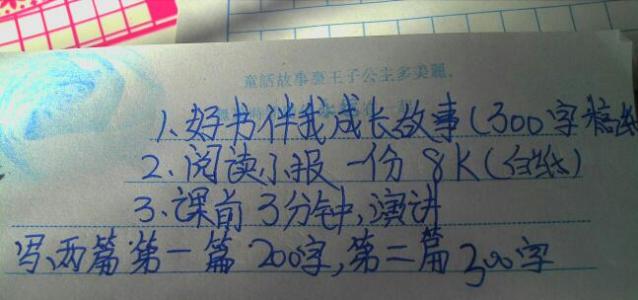 童話故事裏王子公主多美麗,
1、好书伴我成长故事(300字稿纸
2、阅读小报一份 8K(白纸)
3、课前3分钟,演讲
写两篇第一篇200字,第二篇300字